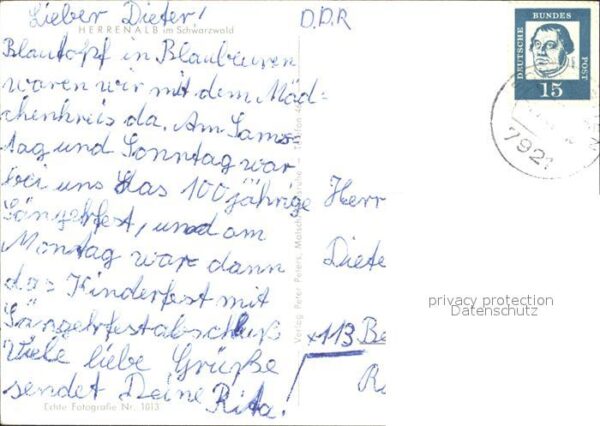 Lieber Dieter!
HERRENALB im Schwarzwald
Blautopf in Blaubeuren
waren wir mit dem Mäd-
chenkreis da. Am Sams-
tag und Sonntag war
bei uns das 100 jährige
Sängerfest, und am
Montag war dann
das Kinderfest mit
Sängerfestabschluß
Viele liebe Grüße
sendet Deine Rita!
Echte Fotografie Nr. 1013
Verlag Peter Peters, Malsch
D.D.R
DEUTSCHE BUNDES POST
15
792
Herr
Diete
x113 Be
privacy protection
Datenschutz